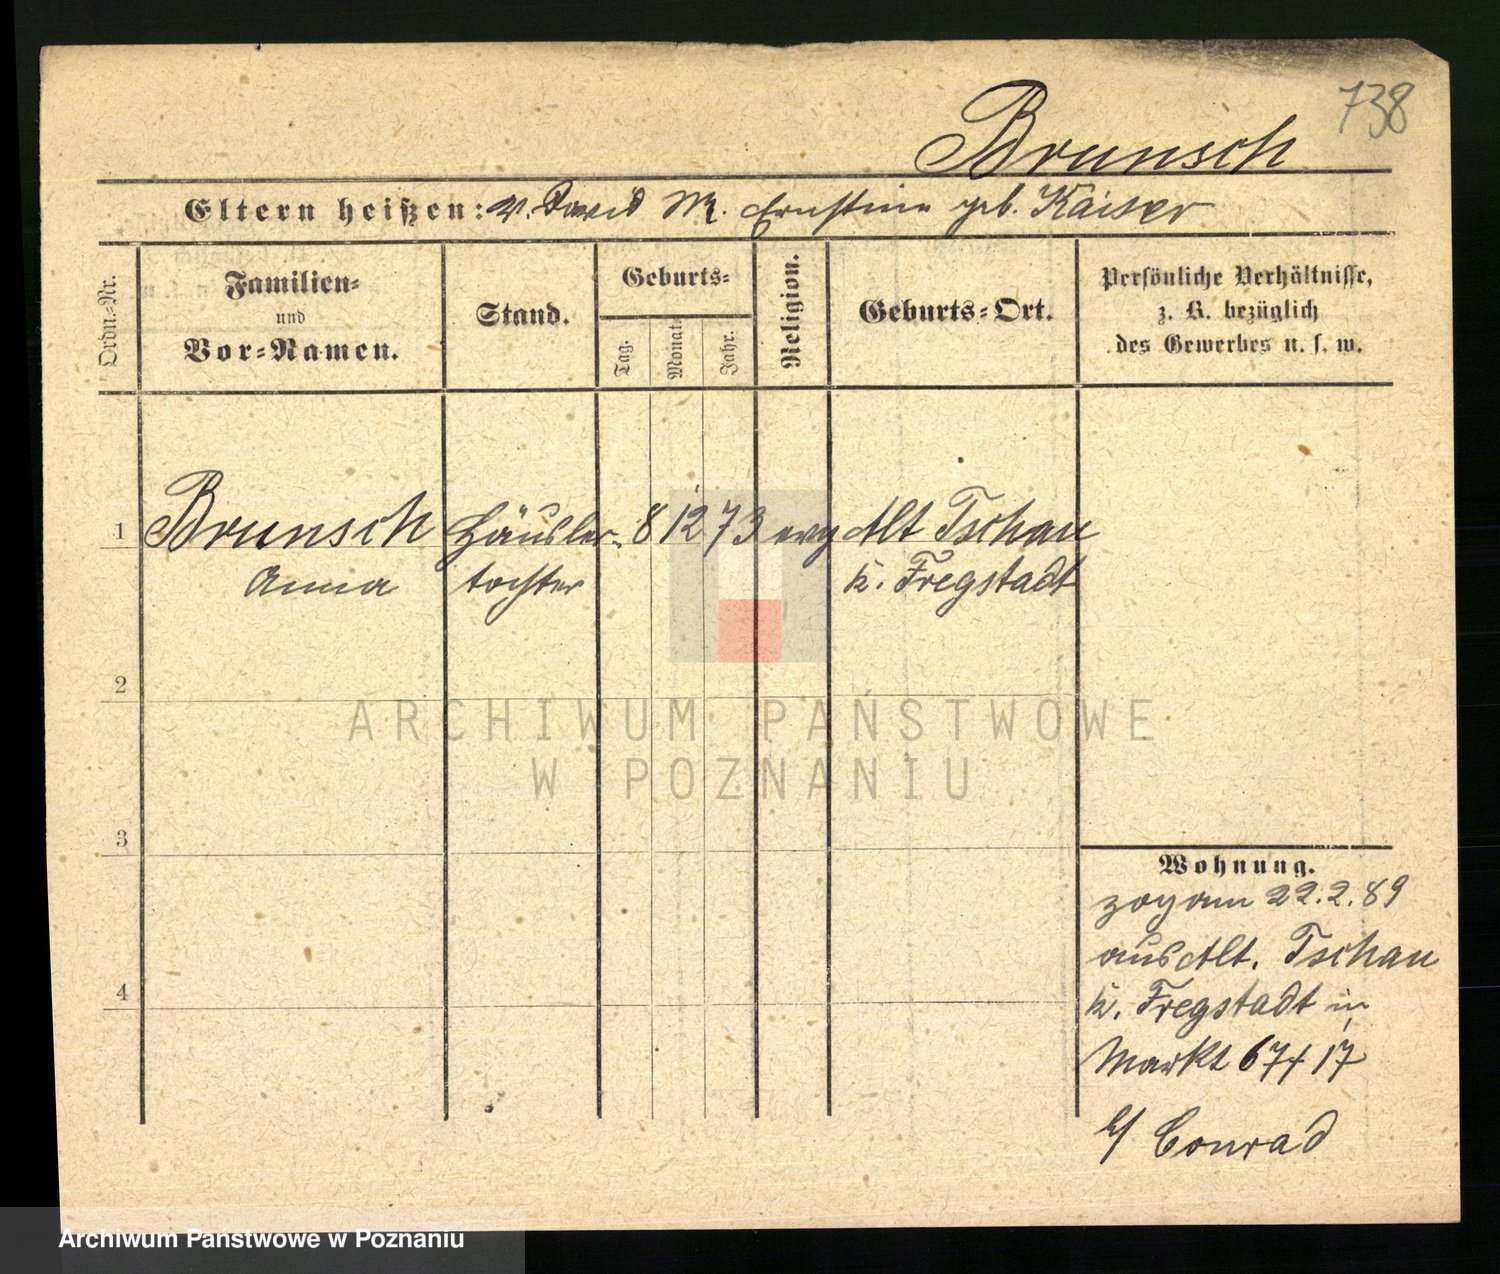 738
Brunsch
Eltern heißen: V. David M. Ernstine geb. Kaiser
Ordn.-Nr.
Familien-
und
Vor-Namen.
Stand.
Geburts-
Tag.
Monat.
Jahr.
Religion.
Geburts-Ort.
Persönliche Verhältnisse,
z. B. bezüglich
des Gewerbes u. s. w.
1 Brunsch Häusler- 8 12 73 evg Alt Tschau
Anna tochter k. Freystadt
2
3
4
Wohnung.
zog am 22.2.89
aus Alt. Tschau
k. Freystadt in
Markt 67/17
b/ Conrad
ARCHIWUM PAŃSTWOWE
W POZNANIU
Archiwum Państwowe w Poznaniu